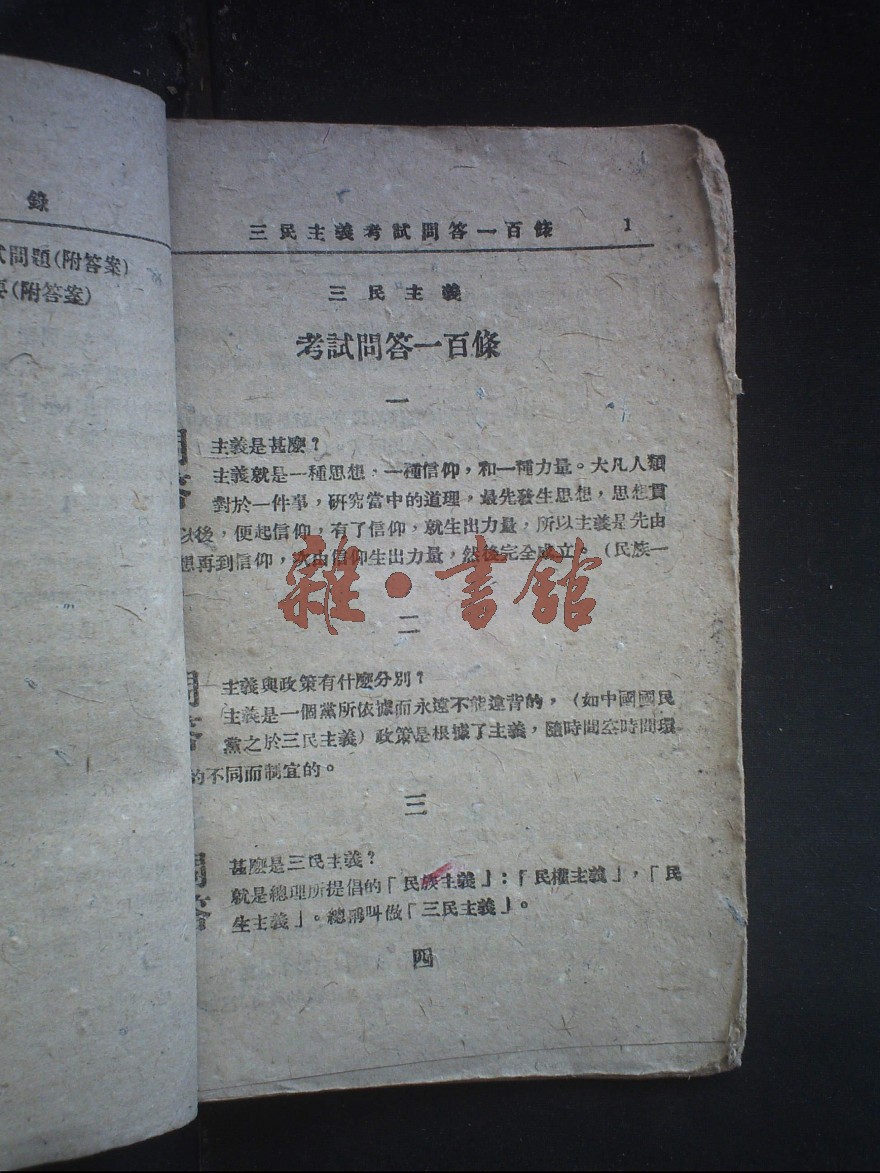 錄
問題(附答案)
(附答案)
三民主義考試問答一百條 1
三民主義
考試問答一百條
一
問 主義是甚麼？
答 主義就是一種思想，一種信仰，和一種力量。大凡人類
對於一件事，研究當中的道理，最先發生思想，思想貫
以後，便起信仰，有了信仰，就生出力量，所以主義是先由
想再到信仰，次由信仰生出力量，然後完全成立。（民族一
雜·書館
二
問 主義與政策有什麼分別？
答 主義是一個黨所依據而永遠不能違背的，（如中國國民
黨之於三民主義）政策是根據了主義，隨時間空時間環
的不同而制宜的。
三
問 甚麼是三民主義？
答 就是總理所提倡的「民族主義」：「民權主義」，「民
生主義」。總稱叫做「三民主義」。
四